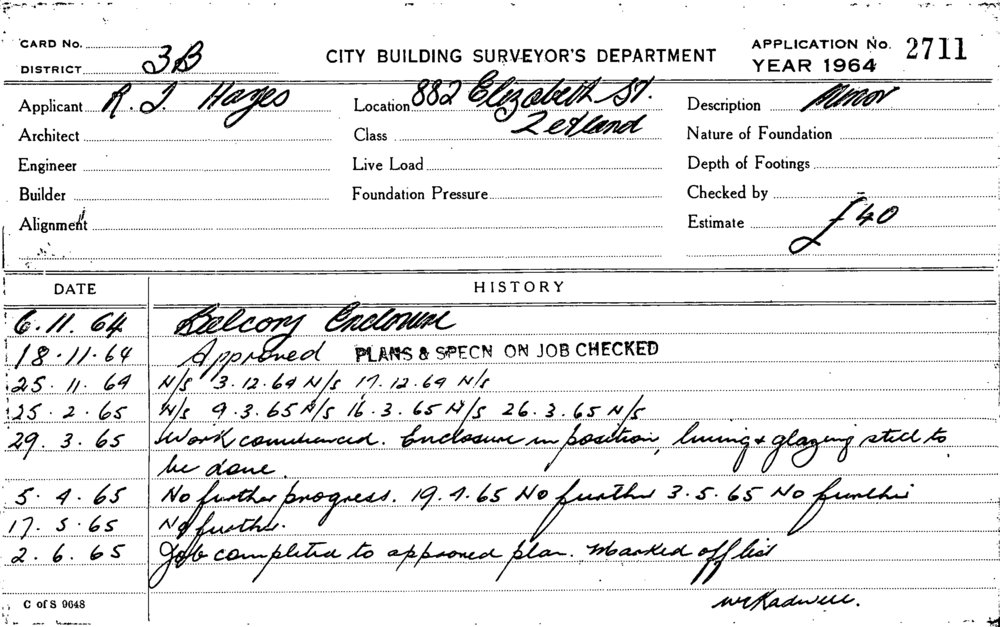 CARD No.
DISTRICT 3B
CITY BUILDING SURVEYOR'S DEPARTMENT
APPLICATION No. 2711
YEAR 1964
Applicant R. J. Hayes
Location 882 Elizabeth St.
Description Minor
Architect
Class Zetland
Nature of Foundation
Engineer
Live Load
Depth of Footings
Builder
Foundation Pressure
Checked by
Alignment
Estimate £40
DATE HISTORY
6.11.64 Balcony Enclosure
18.11.64 Approved PLANS & SPECN ON JOB CHECKED
25.11.64 N/s 3.12.64 N/s 17.12.64 N/s
25.2.65 N/s 9.3.65 N/s 16.3.65 N/s 26.3.65 N/s
29.3.65 Work commenced. Enclosure in position, lining & glazing still to
be done.
5.4.65 No further progress. 19.4.65 No further 3.5.65 No further
17.5.65 No further.
2.6.65 Job completed to approved plan. Marked off list
C of S 9648